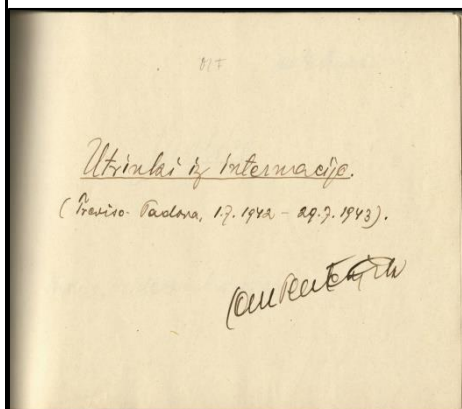 Utrinki iz internacije.
(Treviso - Padova, 1.7.1942 - 29.7.1943).